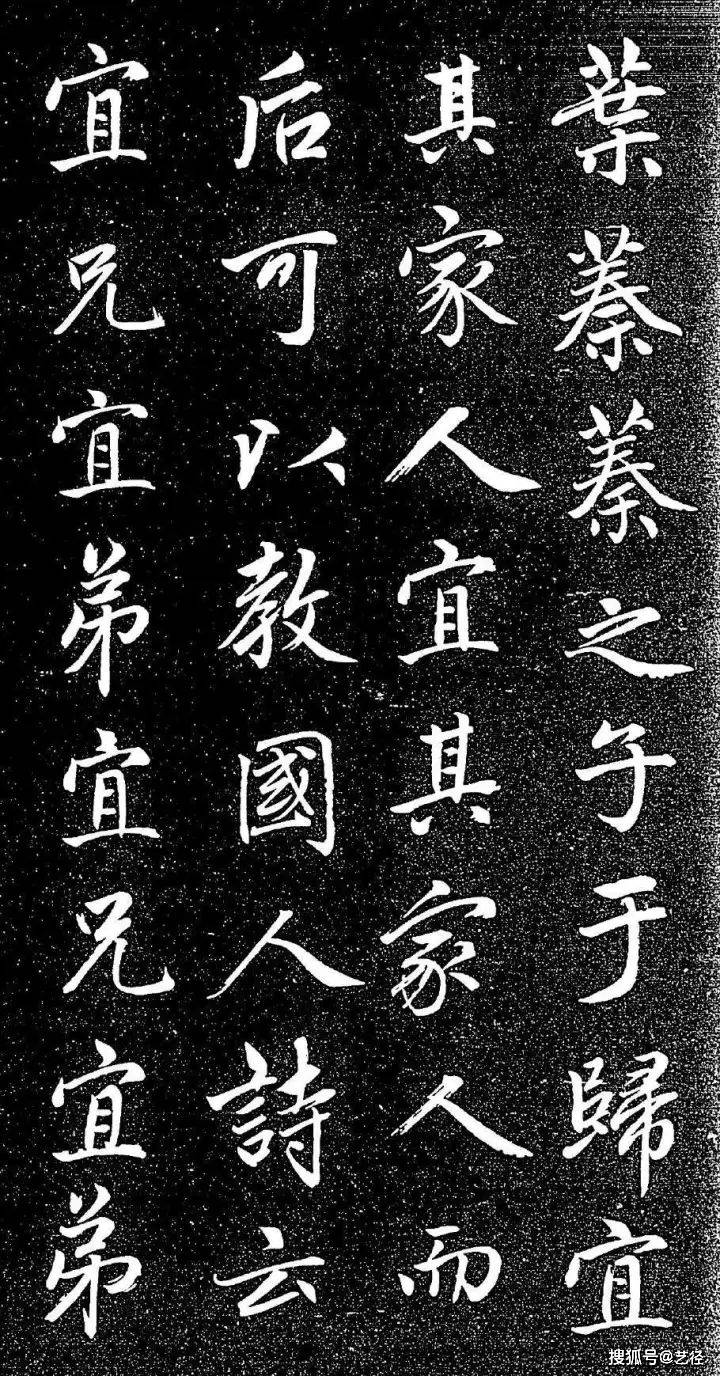 葉蓁蓁之子于歸宜
其家人宜其家人而
后可以教國人詩云
宜兄宜弟宜兄宜弟
搜狐号@艺径